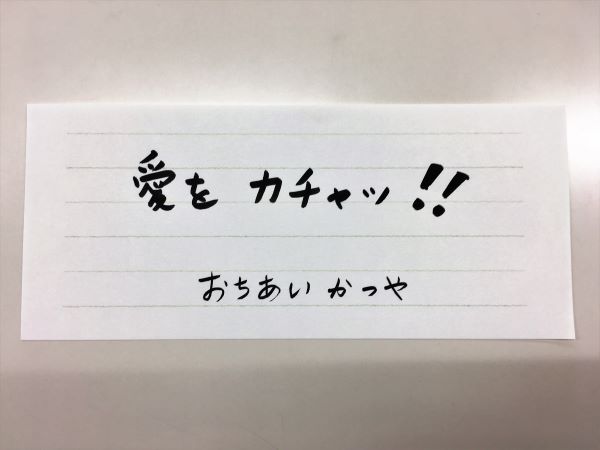 愛を カチャッ!!
おちあい かつや